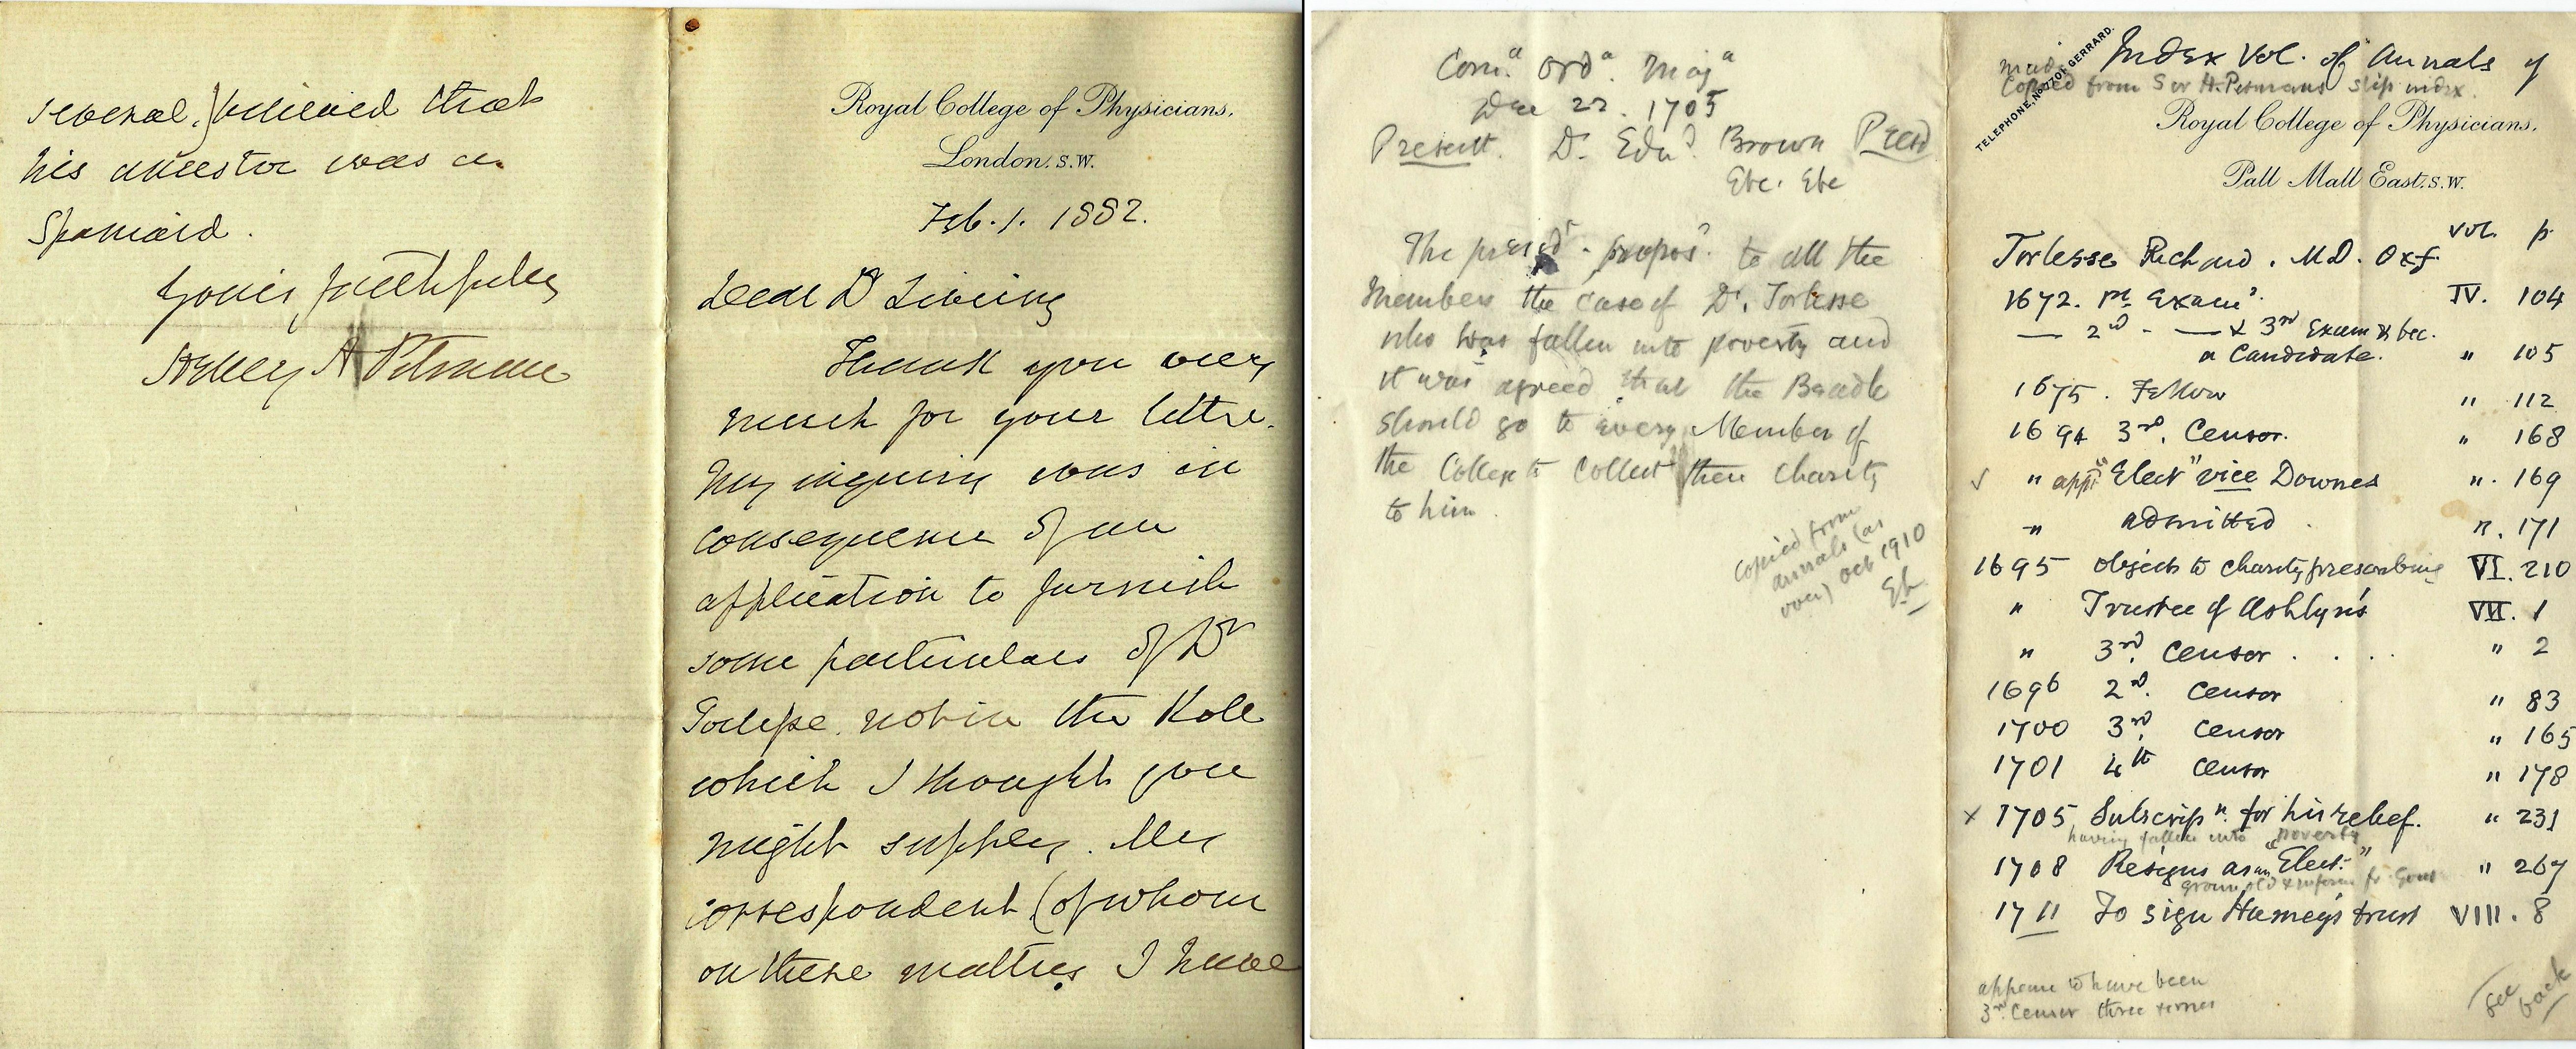 several,) believed that
his ancestor was a
Spaniard.
Yours faithfully
Henry A Pitman
Royal College of Physicians,
London. S.W.
Feb. 1. 1882.
Dear Dr Liveing
Thank you very
much for your letter.
My inquiry was in
consequence of an
application to furnish
some particulars of Dr
Torlesse not in the Roll
which I thought you
might supply. My
correspondent (of whom
on these matters I have
Com.a Ord.a Maj.a
Dec 22. 1705
Present. Dr. Edwd. Brown Presd
Etc. Etc
The presdt. propos.d to all the
Members the case of Dr. Torlesse
who was fallen into poverty and
it was agreed that the Beadle
should go to every Member of
the College to collect their charity
to him.
copied from
annals (as
over) Oct 1910
EL
TELEPHONE, No. 7707 GERRARD.
Index Vol. of Annals of
made
Copied from Sir H. Pitmans slip index.
Royal College of Physicians,
Pall Mall East. S.W.
vol. p.
Torlesse Richard. M.D. Oxf.
1672. 1st Exam.n IV. 104
— 2nd - — & 3rd Exam & bec.
a Candidate. " 105
1675. Fellow " 112
1694 3rd. Censor. " 168
✓ " appd "Elect" vice Downes " . 169
" admitted . " . 171
1695 objects to charity prescribing VI. 210
" Trustee of Ashlyn's VII. 1
" 3rd. Censor . . . . " 2
1696 2nd. Censor " 83
1700 3rd. Censor " 165
1701 4th Censor " 178
x 1705 Subscripn. for his relief. " 231
having fallen into poverty
1708 Resigns as an "Elect." " 267
grown old & infirm fr. Gout
1711 To sign Hamey's trust VIII. 8
appears to have been
3rd. Censor three times
see
back